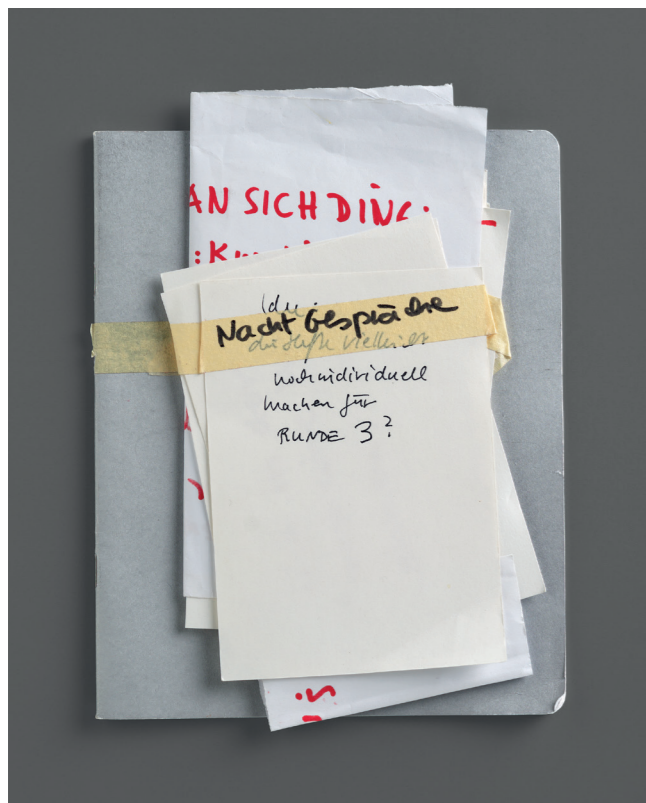 AN SICH DING
: Kun
Idee:
Nacht Gespräche
die Hefte vielleicht
noch individuell
machen für
RUNDE 3?